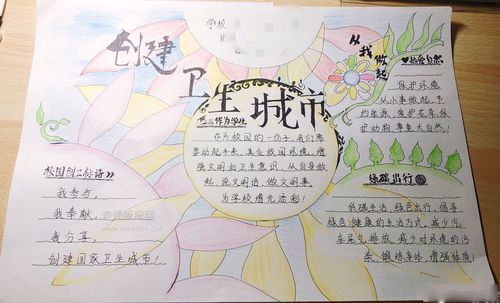 学校
创建
卫生城市
从我做起
作为学生
作为校园的一份子,我们需
要动起手来,美化校园环境,增
强文明的卫生意识,从自身做
起,说文明语,做文明事,
为学校增光添彩!
热爱自然
保护环境
从小事做起,节
约能源,爱护花草,保
护动物,尊重大自然!
校园创卫标语
我参与,
我奉献,
我分享,
创建国家卫生城市!
老师板报网
绿色出行
低碳生活,绿色出行,倡导
绿色、健康的生活方式,减少汽
车尾气排放,减少对环境的污
染,锻炼身体,增强体质!